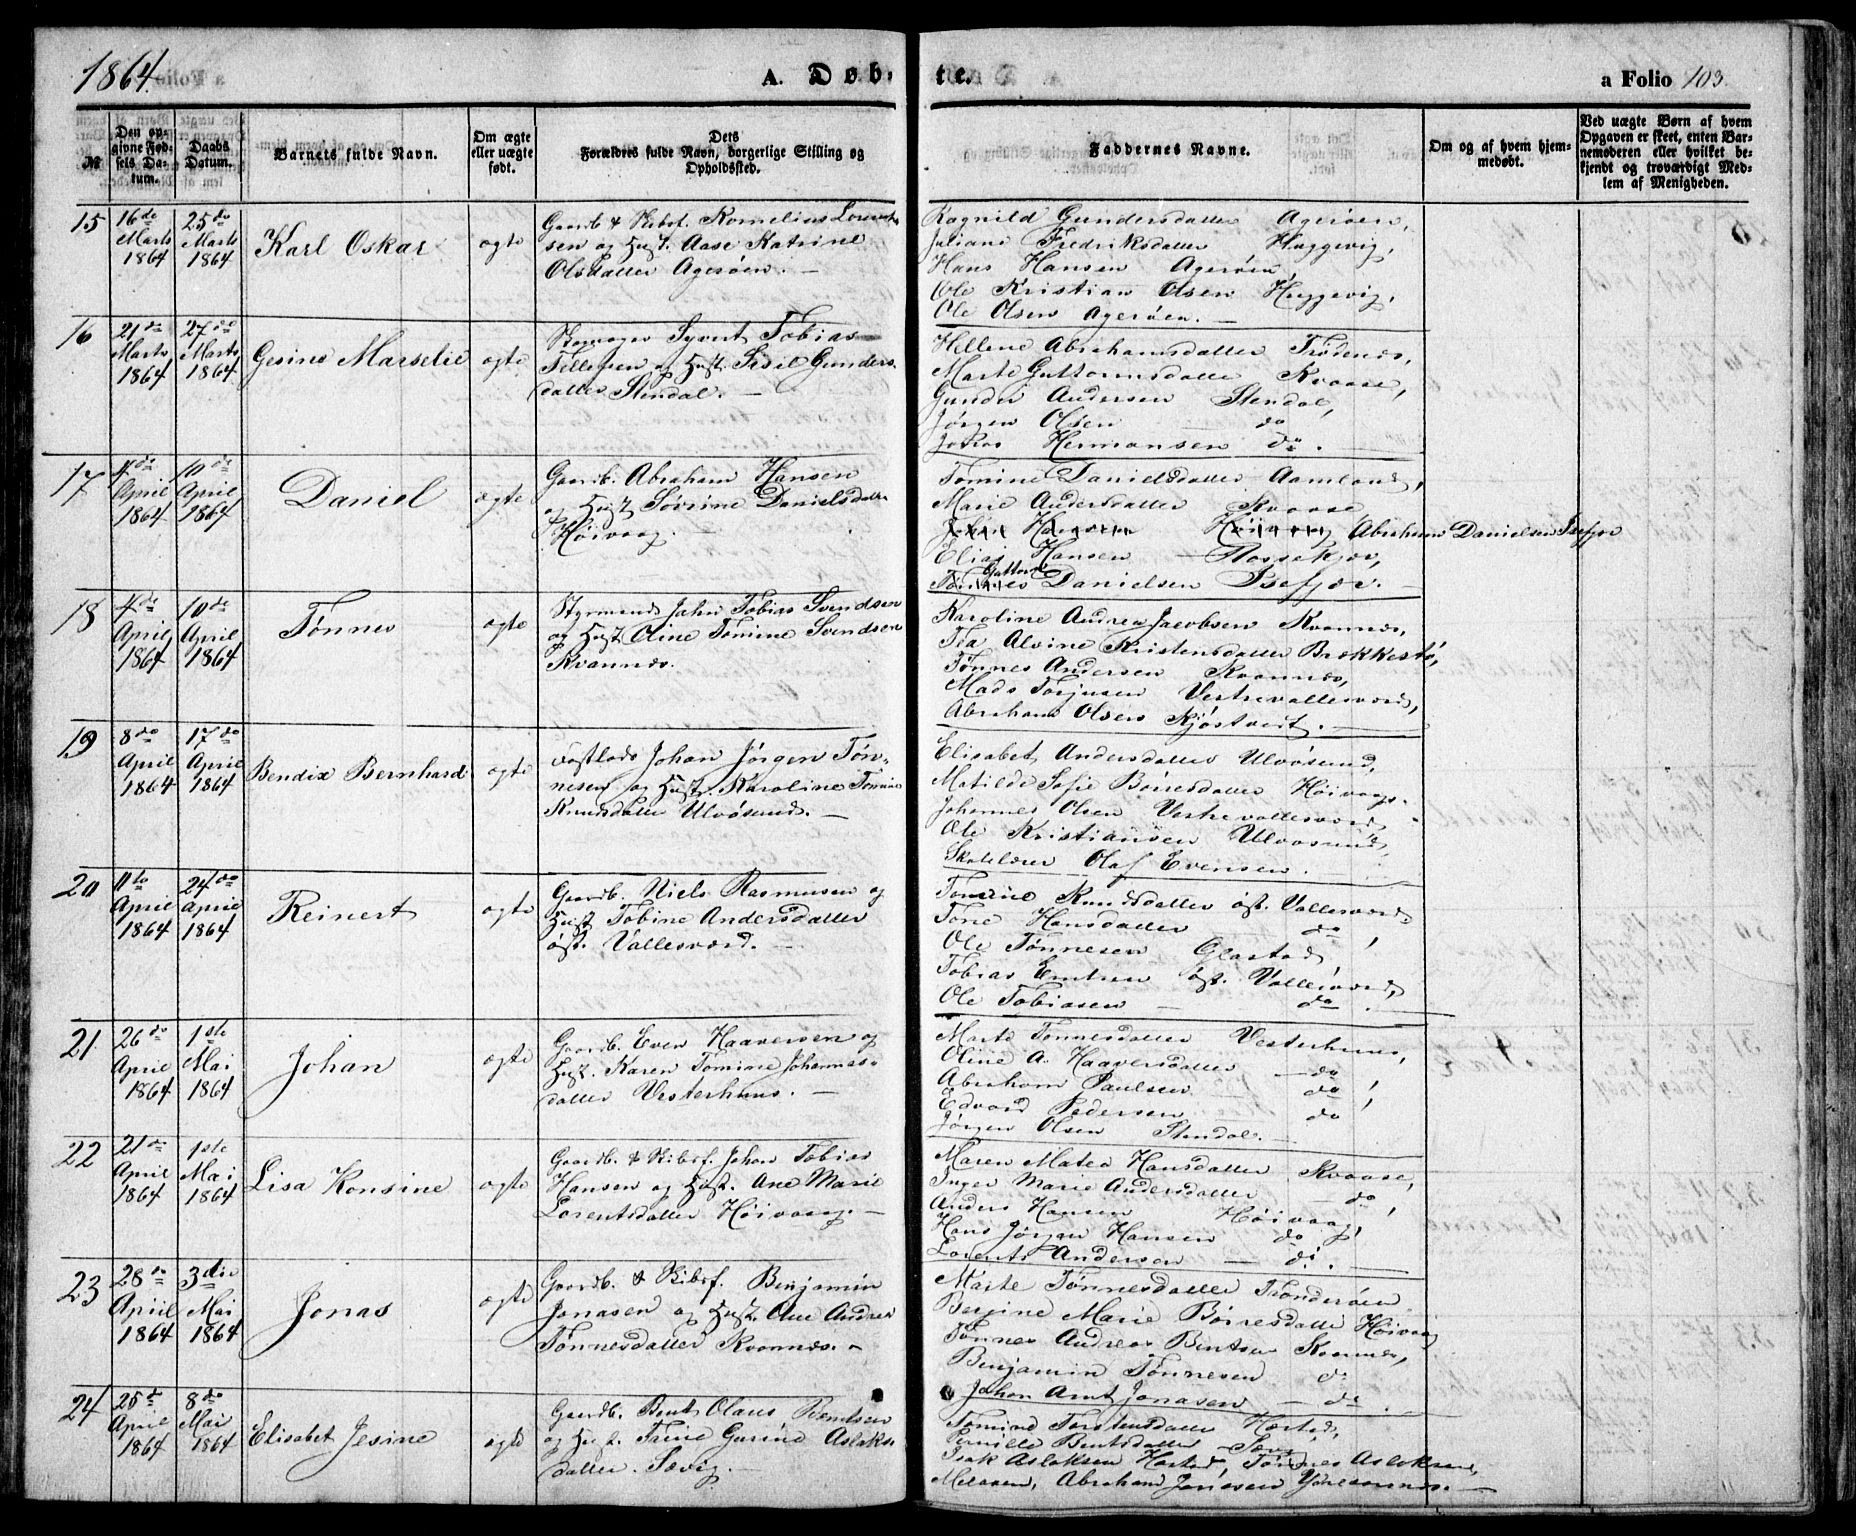 1864.
A. Døb-
te.
a Folio 103.
№
Den op-
givne Fød-
sels Da-
tum.
Daabs
Datum.
Barnets fulde Navn.
Om ægte
eller uægte
født.
Dets
Forældres fulde Navn, borgerlige Stilling og
Opholdssted.
Faddernes Navne.
Om og af hvem hjem-
medøbt.
Ved uægte Børn af hvem
Opgaven er skeet, enten Bar-
nemoderen eller hvilket be-
kjendt og troværdigt Med-
lem af Menigheden.
15
16de
Marts
1864
25do
Marts
1864
Karl Oskar
ægte
Gaardb. & Skibsf. Kornelius Lorents-
sen og Hust. Aase Katrine
Olsdatter Agerøen. —
Ragnild Gundersdatter Agerøen,
Juliane Fredriksdatter Hæggevig,
Hans Hansen Agerøen,
Ole Kristian Olsen Hæggevig,
Ole Olsen Agerøen. —
16
21de
Marts
1864
27de
Marts
1864
Gesine Marselie
ægte
Skomager Syvert Tobias
Tellefsen og Hust. Sisel Gunders-
datter Stendal. —
Hellene Abrahamsdatter Trødenæs,
Marte Guttormsdatter Kvaase,
Gunder Andersen Stendal,
Jørgen Olsen do
Hermansen do.
17
4de
April
1864
10de
April,
1864
Daniel
ægte
Gaardb. Abraham Hansen
og Hust Søvrine Danielsdatter
Høivaag. —
Tomine Danielsdatter Aamland,
Marie Andersdatter Kvaase,
Hansen Høivaag Abraham Danielsen Isefjær
Elias Hansen — Aossekjær,
Guttorm
Tønnes Danielsen Isefjær. —
18
4de
April,
1864
10de
April,
1864
Tønnes
ægte
Styrmand John Tobias Svendsen
og Hust Oline Tomine Svendsen
Kvannæs.
Karoline Andrea Jacobsen Kvannæs,
Tea Alvine Kristensdatter Brækkestø,
Tønnes Andersen Kvannæs,
Mads Torjusen Vestrevallesværd,
Abraham Olsen Kjøstvedt. —
19
8de
April
1864
17de
April
1864
Bendix Bernhard
ægte
Johan Jørgen Tøn-
nesen og Hustr. Karoline Tomine
Knudsdatter Ulvøsund. —
Elisabet Andersdatter Ulvøsund,
Matilde Sofie Børresdatter Høivaag
Johannes Olsen Vestrevallesværd
Ole Kristiansen Ulvøsund,
Skolelærer Olaf Evensen. —
20
11te
April
1864
24de
April
1864
Reinert
ægte
Gaardb. Niels Rasmusen og
Hust Tobine Andersdatter
øst. Vallesværd. —
Tomine Knudsdatter øst. Vallesværd,
Tone Hansdatter do ,
Ole Tønnesen Glastad
Tobias Emtsen øst. Vallesværd,
Ole Tobiasen — do .
21
26de
April
1864
1ste
Mai
1864
Johan
ægte
Gaardb. Even Haaversen og
Hust. Karen Tomine Johannes-
datter Vesterhuus. —
Marte Tønnesdatter Vesterhuus,
Oline A. Haaversdatter — do
Abraham Paulsen do ,
Edvard Pedersen do
Jørgen Olsen Stendal. —
22
21de
April
1864
1ste
Mai
1864
Lisa Konsine
ægte
Gaardb. & Skibsf. Johan Tobias
Hansen og Hust. Ane Marie
Lorentsdatter Høivaag. —
Maren Matea Hansdatter Kvaase,
Inger Marie Andersdatter — do,
Anders Hansen Høivaag,
Hans Jørgen Hansen do
Lorents Andersen — do. —
23
28de
April
1864
3die
Mai
1864
Jonas
ægte
Gaardb. & Skibsf. Benjamin
Jonasen og Hust. Ane Andrea
Tønnesdatter Kvannæs. —
Marte Tønnesdatter Trønderøen
Bergine Marie Børresdatter Høivaag
Tønnes Andreas Bentsen Kvannæs,
Benjamin Tønnesen do
Johan Arnt Jonasen — do .
24
25de
April
1864
8de
Mai
1864
Elisabet Jesine
ægte
Gaardb. Bent Olaus Bentsen
og Hust. Trine Gurine Aslaks-
datter. Sævig. —
Tomine Torstensdatter Hæstad,
Pernille Bentsdatter Sævig
Isak Aslaksen Hæstad, Tønnes Aslaksen,
Abraham Jonasen